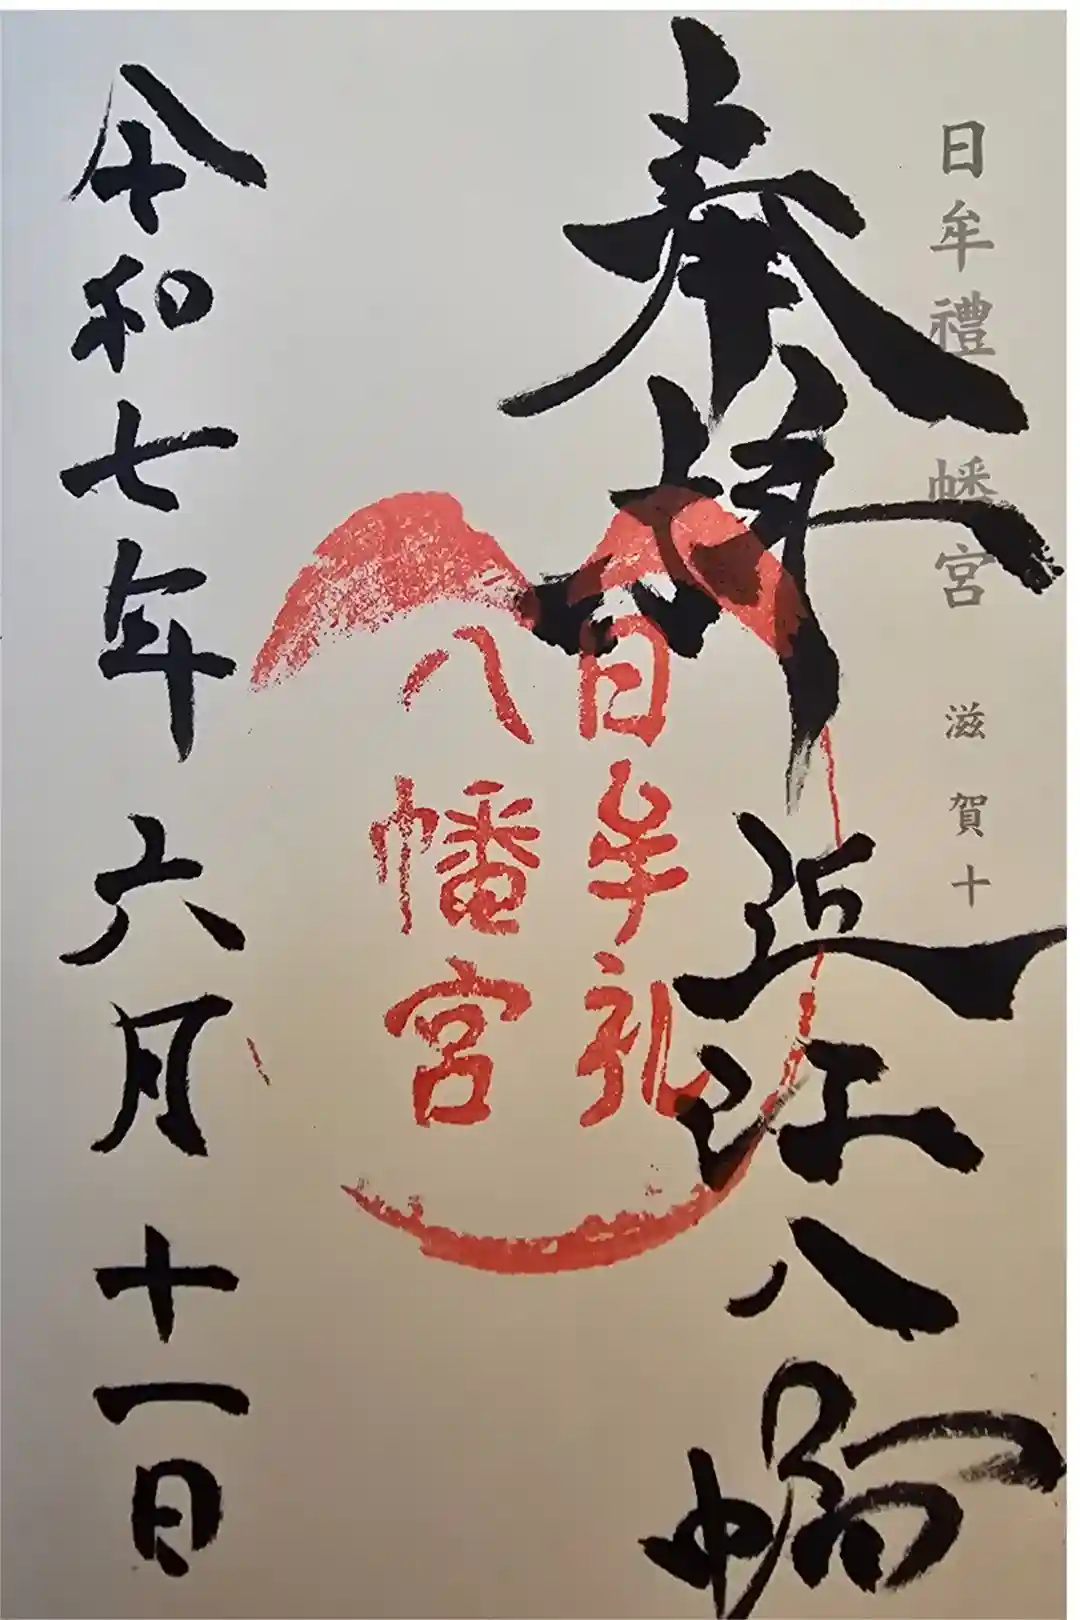 日牟禮 幡宮 滋賀十
奉拝 近江八幡
日牟礼
八幡宮
令和七年六月十一日